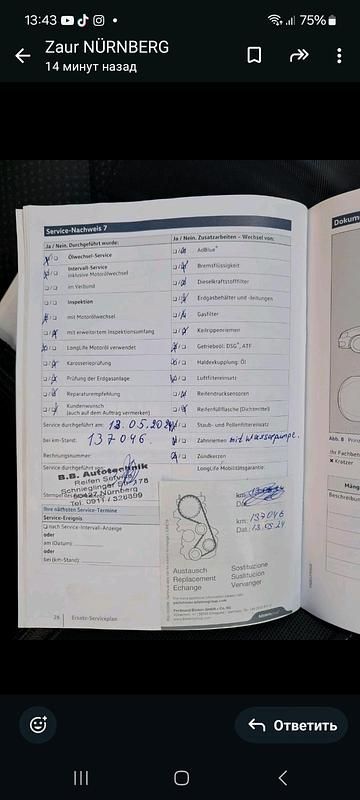 13:43
75%
Zaur NÜRNBERG
14 минут назад
Service-Nachweis 7
Ja / Nein. Durchgeführt wurde:
Ölwechsel-Service
Intervall-Service
inklusive Motorölwechsel
im Verbund
Inspektion
mit Motorölwechsel
mit erweitertem Inspektionsumfang
LongLife Motoröl verwendet
Karosserieprüfung
Prüfung der Erdgasanlage
Reparaturempfehlung
Kundenwunsch
(auch auf dem Auftrag vermerken)
Service durchgeführt am: 13.05.2024
bei km-Stand: 137046.
Rechnungsnummer:
Service durchgeführt
B.B. Autotechnik
Reifen Service
Schnieglinger Str. 178
90427 Nürnberg
Tel. 0911 / 326899
Ihre nächsten Service-Termine
Service-Ereignis
nach Service-Intervall-Anzeige
oder
am (Datum)
oder
bei (km-Stand)
26 Ersatz-Serviceplan
Ja / Nein. Zusatzarbeiten – Wechsel von:
AdBlue®
Bremsflüssigkeit
Dieselkraftstofffilter
Erdgasbehälter und -leitungen
Gasfilter
Keilrippenriemen
Getriebeöl: DSG®, ATF
Haldexkupplung: Öl
Luftfiltereinsatz
Reifendrucksensoren
Reifenfüllflasche (Dichtmittel)
Staub- und Pollenfiltereinsatz
Zahnriemen mit Wasserpumpe.
Zündkerzen
LongLife Mobilitätsgarantie
km:
km: 137046
Dat.: 13.05.24
Austausch
Replacement
Echange
Sostituzione
Sustitución
Vervanger
Dokum
Abb. 8
Ihr Fachbet
× Kratzer
Mäng
Beschreibu
Ответить